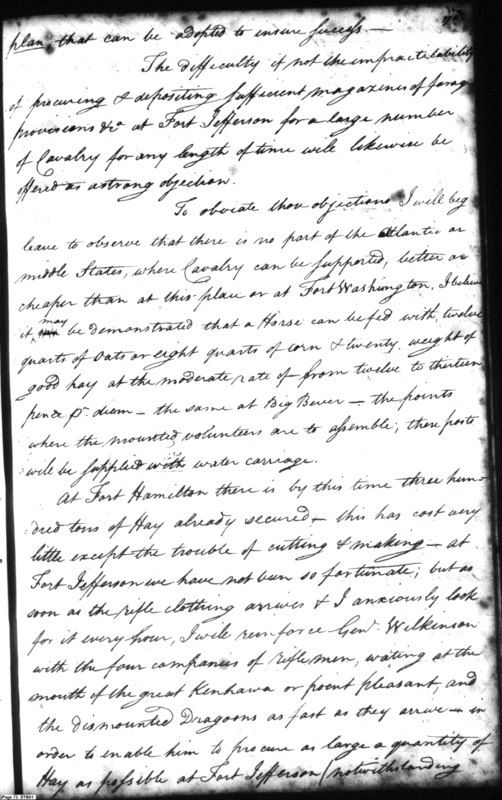 plan, that can be adopted to ensure success —
The difficulty if not the impracticability
of procuring & depositing sufficient magazines of forage
provisions &ca at Fort Jefferson for a large number
of Cavalry for any length of time will likewise be
offered as a strong objection.
To obviate those objections I will beg
leave to observe that there is no part of the Atlantic or
middle States, where Cavalry can be supported, better or
cheaper than at this place or at Fort Washington, I believe
it may be demonstrated that a Horse can be fed with twelve
quarts of Oats or eight quarts of corn & twenty weight of
good hay at the moderate rate of from twelve to thirteen
pence pr. diem — the same at Big Bever — the points
where the mounted volunteers are to assemble; these posts
will be supplied with water carriage.
At Fort Hamilton there is by this time three hun-
dred tons of Hay already secured — this has cost very
little except the trouble of cutting & making — at
Fort Jefferson we have not been so fortunate; but as
soon as the rifle clothing arrives & I anxiously look
for it every hour, I will reinforce Genl. Wilkinson
with the four companies of riflemen, waiting at the
mouth of the great Kenhawa or point pleasant, and
the dismounted Dragoons as fast as they arrive — in
order to enable him to procure as large a quantity of
Hay as possible at Fort Jefferson (notwithstanding